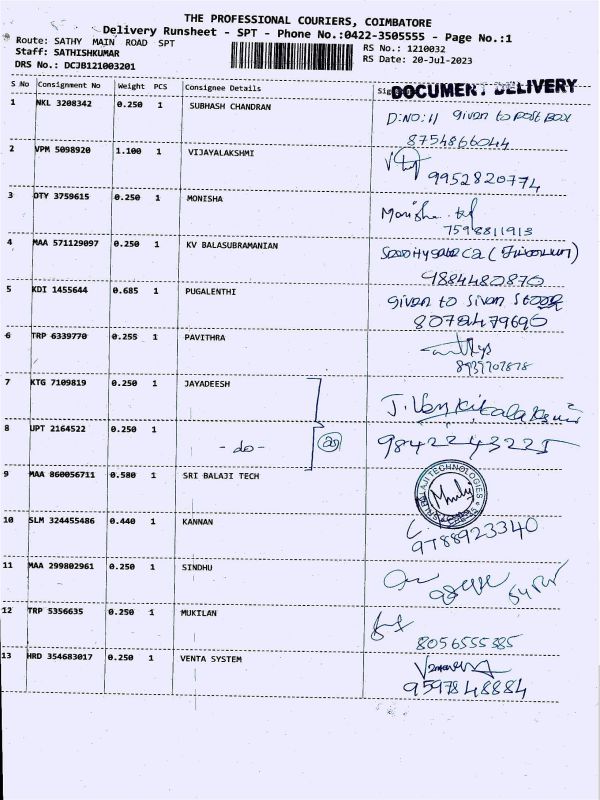 THE PROFESSIONAL COURIERS, COIMBATORE
Delivery Runsheet - SPT - Phone No.:0422-3505555 - Page No.:1
Route: SATHY MAIN ROAD SPT
Staff: SATHISHKUMAR
DRS No.: DCJB121003201
RS No.: 1210032
RS Date: 20-Jul-2023
S No Consignment No Weight PCS Consignee Details
DOCUMENT DELIVERY
1 NKL 3208342 0.250 1 SUBHASH CHANDRAN
D:NO:11 given to Post Box
8754866044
2 VPM 5098920 1.100 1 VIJAYALAKSHMI
9952820774
3 DTY 3759615 0.250 1 MONISHA
Monisha
7598811913
4 MAA 571129097 0.250 1 KV BALASUBRAMANIAN
9884480870
5 KDI 1455644 0.685 1 PUGALENTHI
given to Sivan Store
8078479690
6 TRP 6339770 0.255 1 PAVITHRA
8939707878
7 KTG 7109819 0.250 1 JAYADEESH
8 UPT 2164522 0.250 1
- do -
9842243225
9 MAA 860056711 0.580 1 SRI BALAJI TECH
10 SLM 324455486 0.440 1 KANNAN
9788923340
11 MAA 299802961 0.250 1 SINDHU
12 TRP 5356635 0.250 1 MUKILAN
8056555385
13 HRD 354683017 0.250 1 VENTA SYSTEM
9597848884